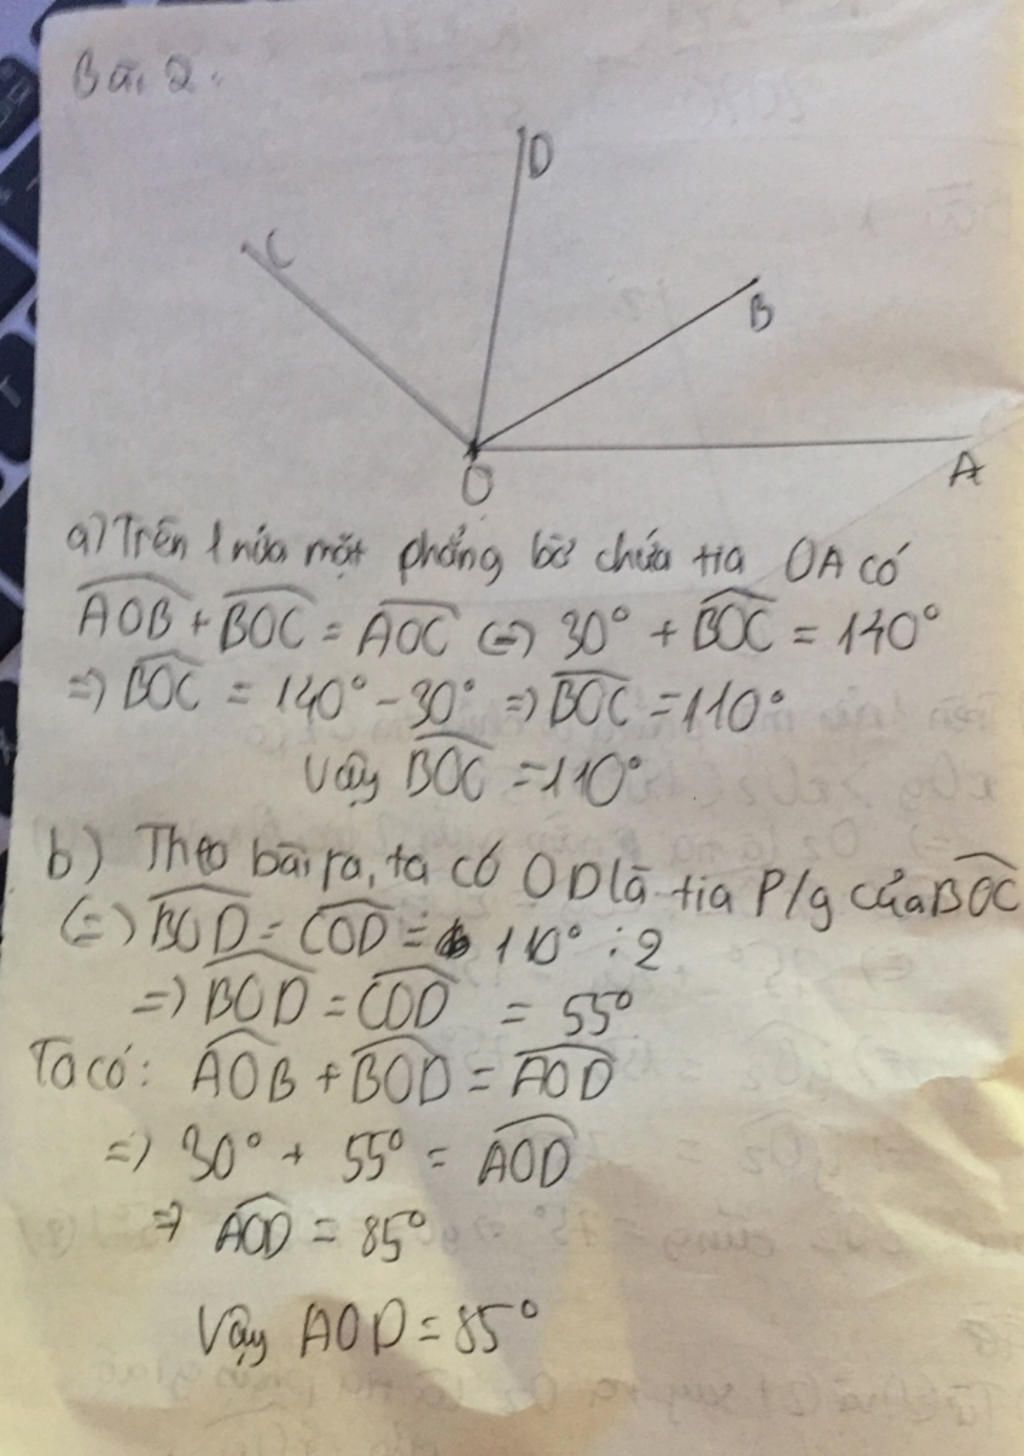 Bài 2:
D
C
B
O
A
a) Trên 1 nửa mặt phẳng bờ chứa tia OA có
AOB + BOC = AOC (=) 30° + BOC = 140°
=) BOC = 140° - 30° =) BOC = 110°
Vậy BOC = 110°
b) Theo bài ra, ta có OD là tia P/g của BOC
(=) BOD = COD = 110° : 2
=) BOD = COD = 55°
Ta có: AOB + BOD = AOD
=) 30° + 55° = AOD
=) AOD = 85°
Vậy AOD = 85°